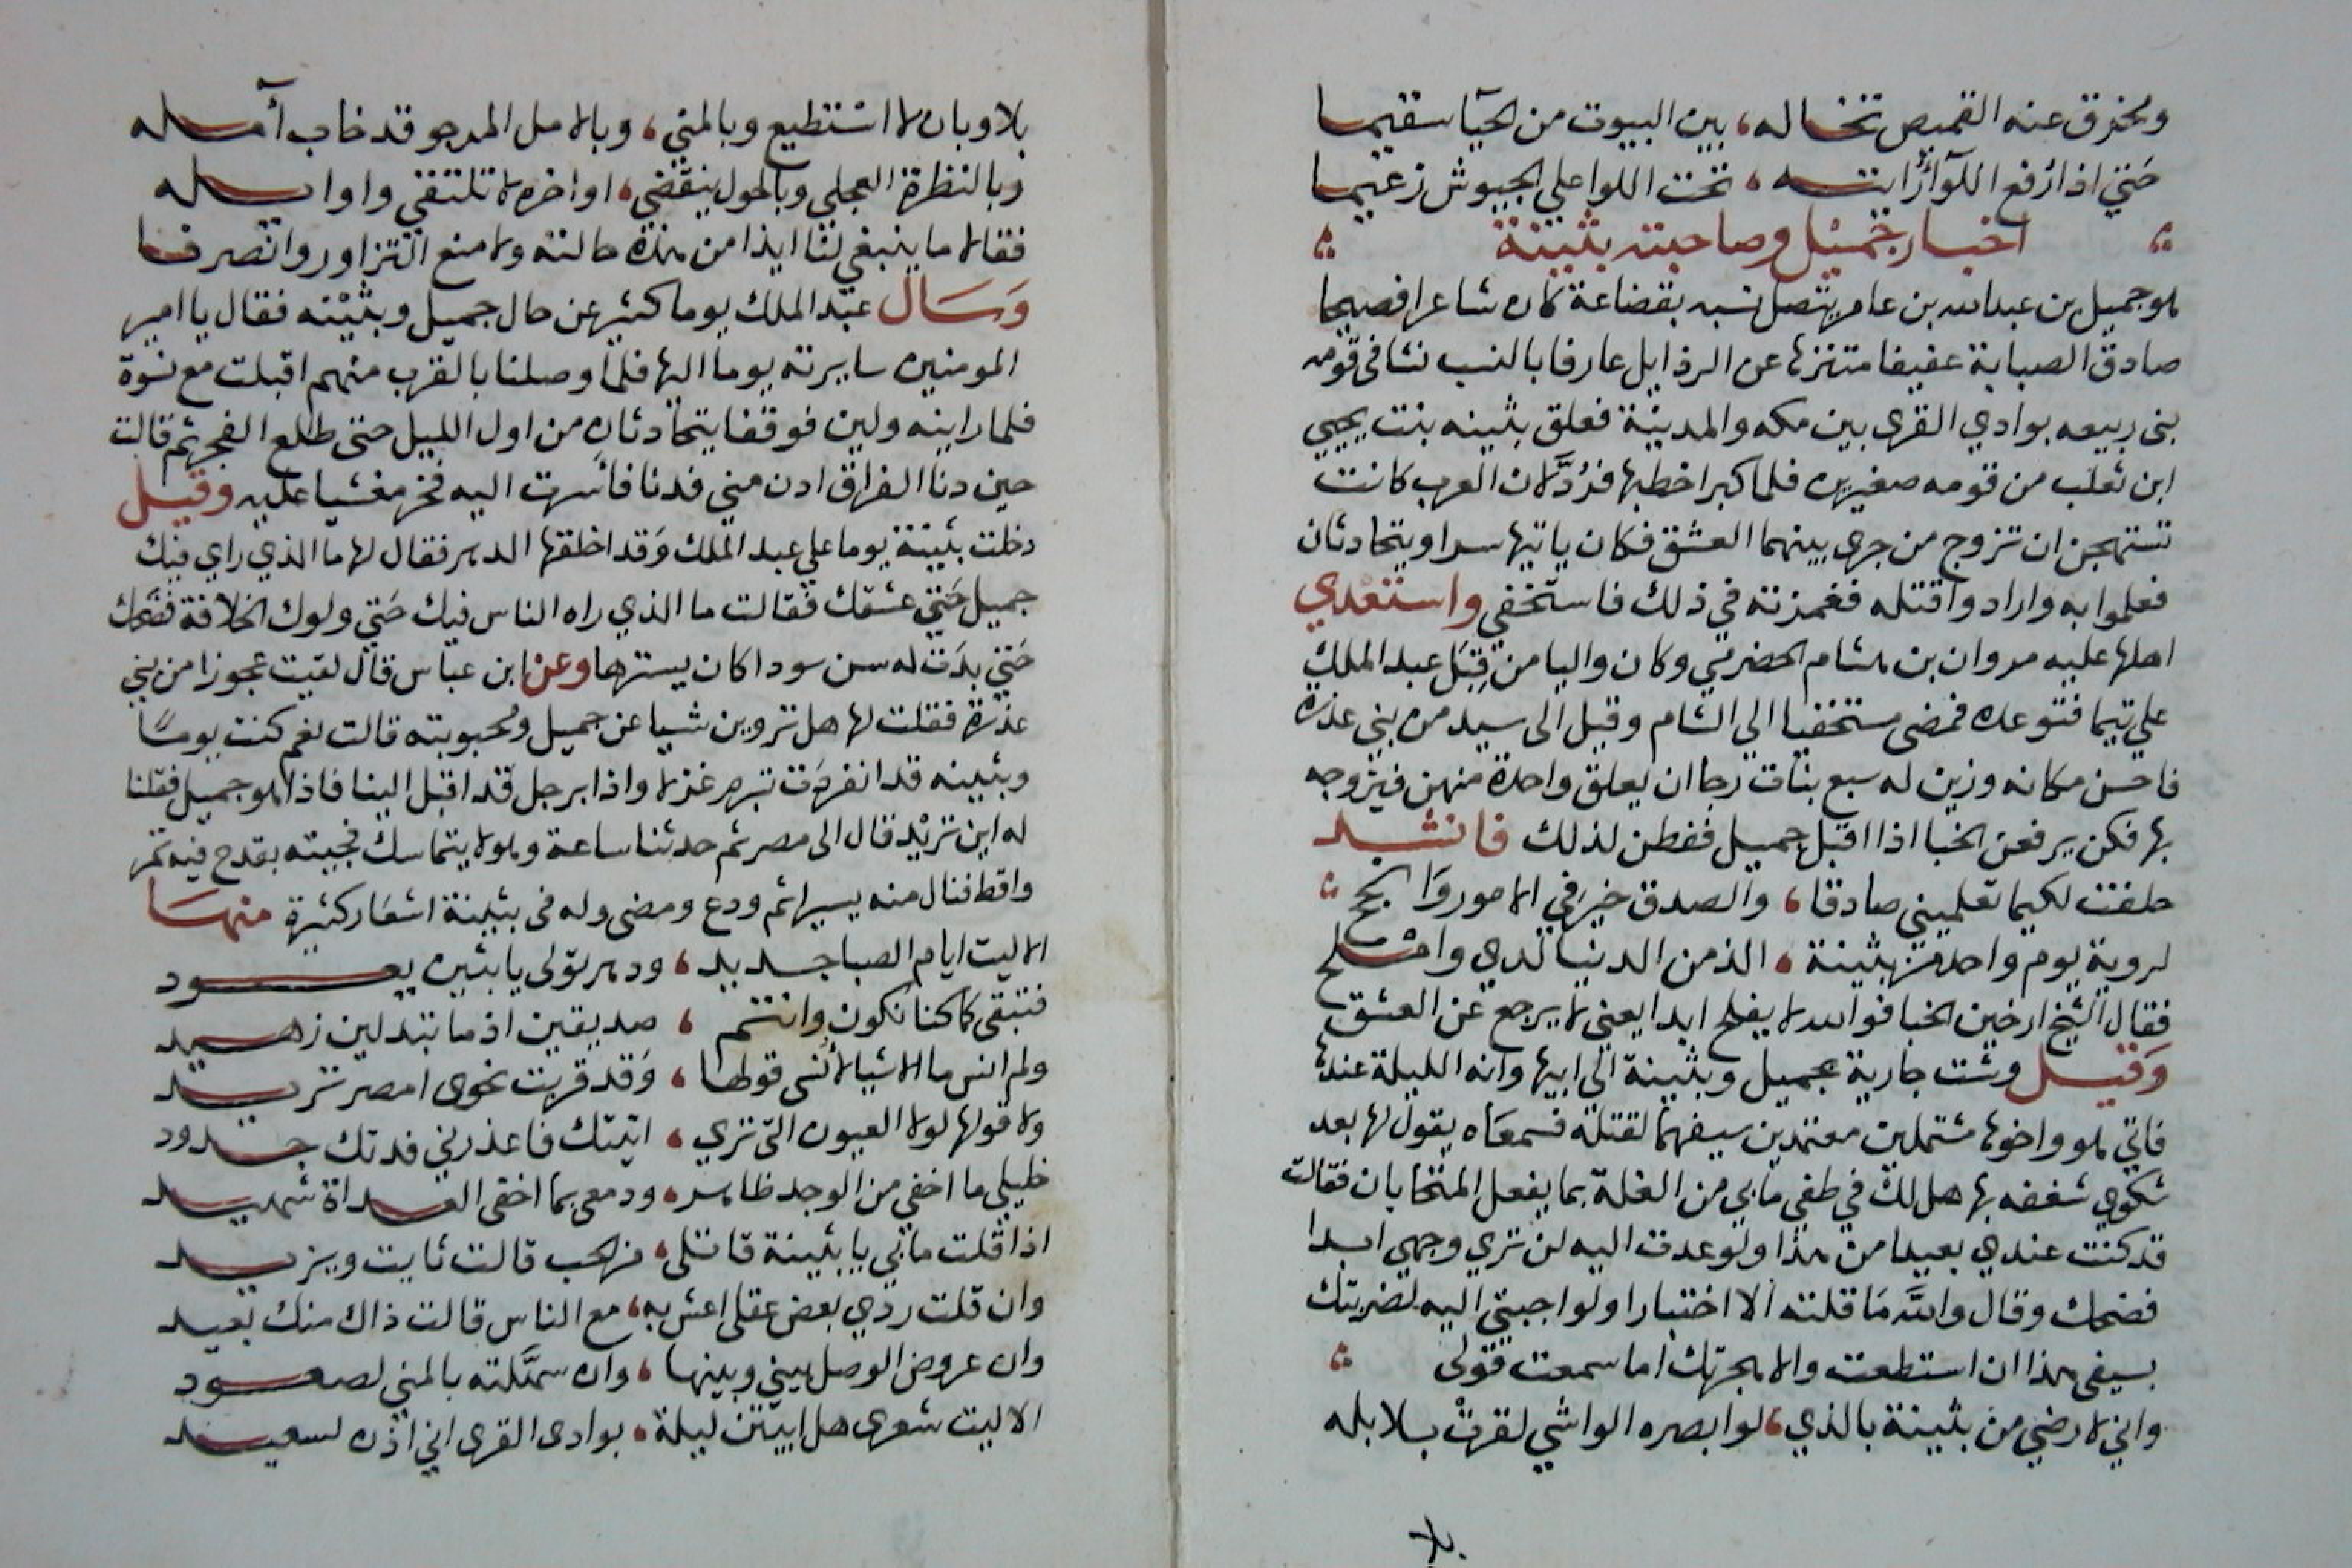 ومخرق عنه القميص تخاله، بين البيوت من الحيا سقيما
حتي اذا رفع اللوآ رأيته، تحت اللوا علي الجيوش زعيما
اخبار جميل وصاحبته بثينة
هو جميل بن عبدالله بن عامر يتصل نسبه بقضاعة كان شاعرا فصيحا
صادق الصبابة عفيفا متنزها عن الرذايل عارفا بالنسب نشا في قومه
بنى ربيعه بوادي القرى بين مكه والمدينة فعلق بثينه بنت يحيي
ابن ثعلب من قومه صغيرين فلما كبرا خطبها فردَّ لان العرب كانت
تستهجن ان تزوج من جرى بينهما العشق فكان ياتيها سرا ويتحادثان
فعلموا به وارادوا قتله فغمزته في ذلك فاستخفي واستعدي
اهلها عليه مروان بن هشام الحضرمي وكان واليا من قِبَل عبد الملك
علي تيما فتوعده فمضى مستخفيا الي الشام وقيل الى سيد من بني عذره
فاحسن مكانه وزين له سبع بنات رجا ان يعلق واحدة منهن فيزوجه
بها فكن يرفعن الخبا اذا اقبل جميل ففطن لذلك فانشد
حلفت لكيما تعلميني صادقا، والصدق خير في الامور وانجح
لروية يوم واحد من بثينة، الذ من الدنيا لدي واملح
فقال الشيخ ارخين الخبا فوالله لا يفلح ابدا يعني لا يرجع عن العشق
وقيل وشت جارية بجميل وبثينة الى ابيها وانه الليلة عندها
فاتي هو واخوها مشتملين معتمدين سيفهما لقتله فسمعاه يقول لها بعد
شكوي شغفه بها هل لك في طفي ما بي من الغلة بما يفعل المتحابان فقالت
قد كنت عندي بعيدا من هذا ولو عدت اليه لن تري وجهي ابدا
فضحك وقال والله ما قلته الا اختبارا ولو اجبتي اليه لضربتك
بسيفى هذا ان استطعت والا هجرتك اما سمعت قولى
واني لارضي من بثينة بالذي، لو ابصره الواشي لقرت بلابله
بلا
بلا وبان لا استطيع وبالمني، وبالامل المرجو قد خاب آمله
وبالنظرة العجلي وبالحول ينقضي، اواخره لا تلتقي واوايله
فقالا ما ينبغي لنا ايذا من هذه حالته ولا منع التزاور وانصرفا
وسال عبد الملك يوما كثير عن حال جميل وبثينه فقال يا امير
المومنين سايرته يوما اليها فلما وصلنا بالقرب منهم اقبلت مع نسوة
فلما راينه ولين فوقفا يتحادثان من اول الليل حتى طلع الفجر ثم قالت
حين دنا الفراق ادن مني فدنا فأسرت اليه فخر مغشيا عليه وقيل
دخلت بثينة يوما علي عبد الملك وقد اخلقها الدهر فقال لها ما الذي راي فيك
جميل حتي عشقك فقالت ما الذي راه الناس فيك حتي ولوك الخلافة فضحك
حتي بدت له سن سودا كان يسترها وعن ابن عباس قال لقيت عجوزا من بني
عذرة فقلت لها هل تروين شيا عن جميل ومحبوبته قالت نعم كنت يوما
وبثينه قد انفردت تبرم غزلا واذا برجل قد اقبل الينا فاذا هو جميل فقلنا
له اين تريد قال الى مصر ثم حدثنا ساعة وهو لا يتماسك فجيته بقدح فيه تمر
واقط فنال منه يسيرا ثم ودع ومضى وله فى بثينة اشعار كثيرة منها
الا ليت ايام الصبا جديد، ودهر تولى يا بثين يعود
فنبقى كما كنا نكون وانتم، صديقين اذ ما تبدلين زهيد
ولم انس ما الاشيا لا أنسى قولها، وقد قربت نحوى امصر تريد
ولا قولها لولا العيون التى تري، اتيتك فاعذرني فدتك جدود
خليلي ما اخفي من الوجد ظاهر، ودمعى بما اخفى الغداة شهيد
اذا قلت ما بي يا بثينة قاتلى، من الحب قالت ثابت ويزيد
وان قلت ردي بعض عقلى اعش به، مع الناس قالت ذاك منك بعيد
وان عروض الوصل بيني وبينها، وان سهَّلته بالمني لصعود
الا ليت شعرى هل ابيتن ليلة، بوادى القرى اني اذن لسعيد